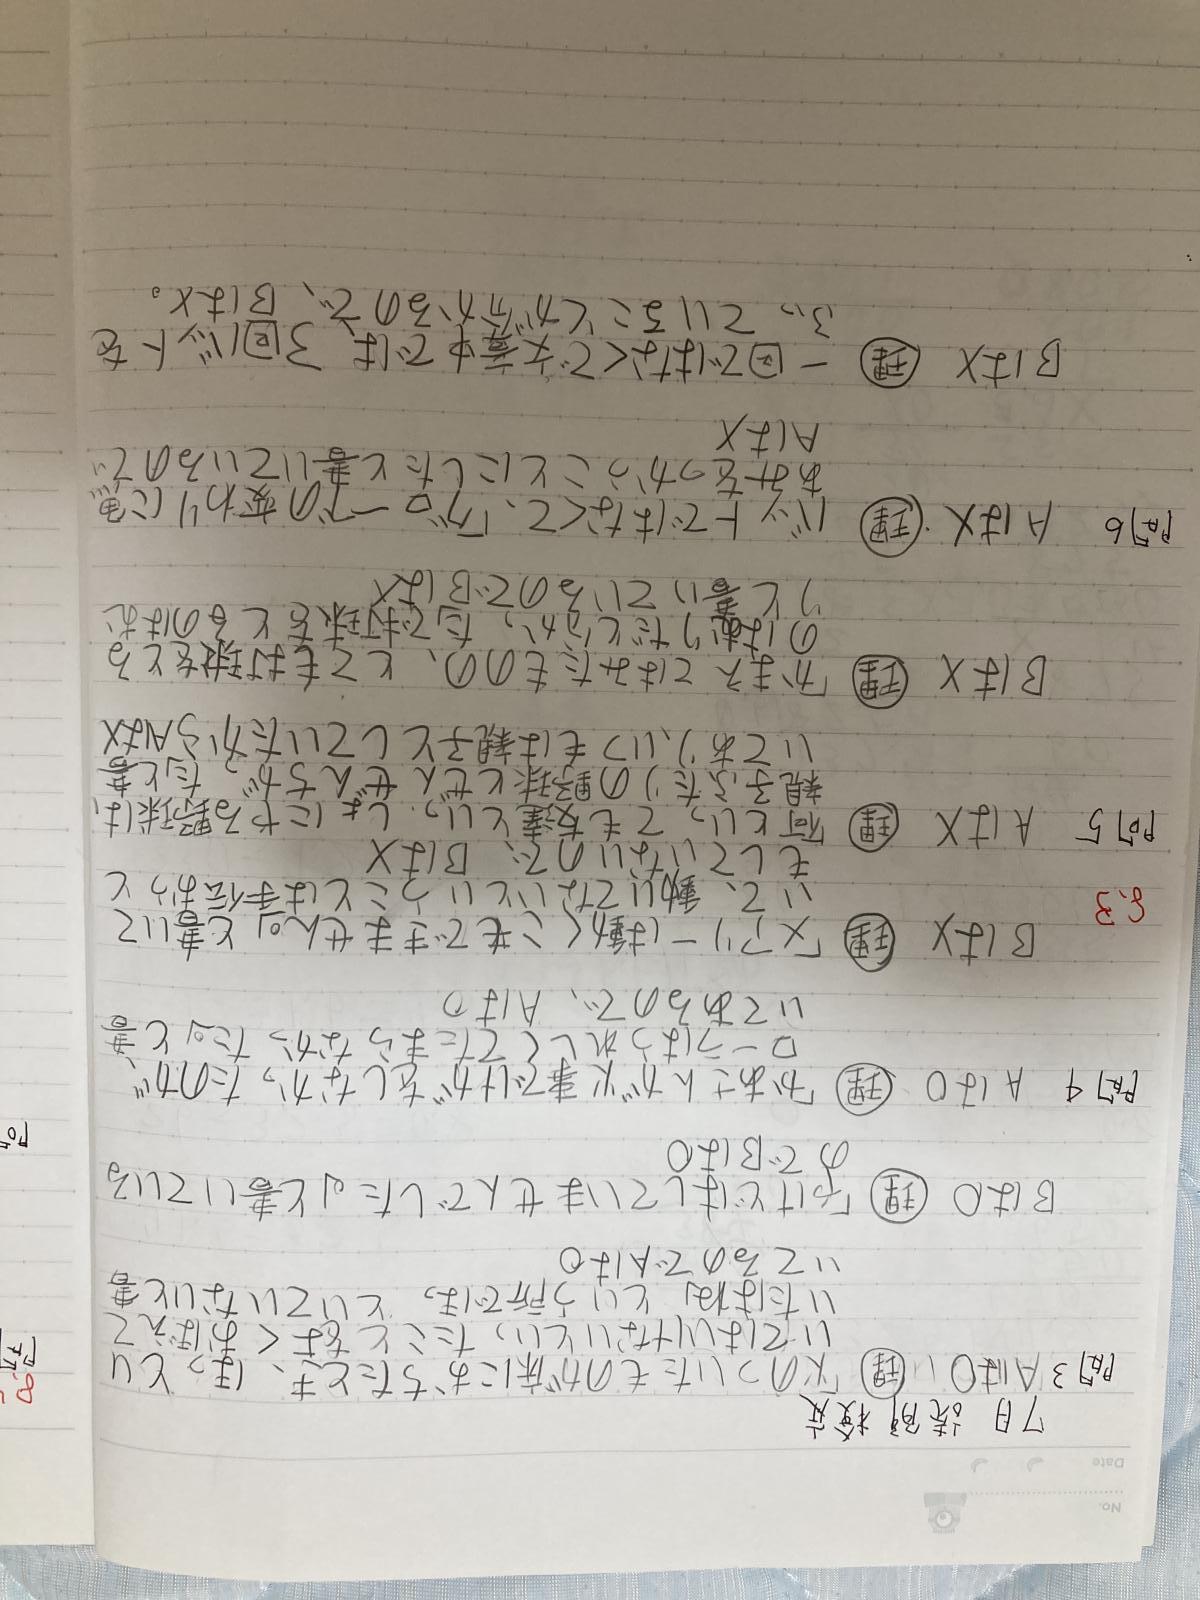 No.
Date
7月 読解検定
問3 AはO 理 「火のついたものが床におちたとき、ほっとい
いてはいけないといったことをよくおぼえて
いたはね」という所でほっといていないと書
いてるのでAはO
BはO 理 「やけどはしていませんでした。」と書いている
のでBはO
問4 AはO 理 「かあさんが火事でけがをしなかったのが、
ローラはうれしくてたまらなかった。」と書
いてあるので、AはO
BはX 理 「メアリーは動くこもできません。」と書いて
いて、動いてないということは手伝おうと
もしていないので、BはX
8.3
問5 AはX 理 「何といっても友達といっしょにやる野球は、
親子ふたりの野球とぜんぜんちがった」と書
いてあり、いつもは親子としていたからAはX
BはX 理 「かまえてはみたものの、とても打球をとる
のはむりだとわかった」で打球をとるのはむ
りと書いているのでBはX
問6 AはX 理 バットではなくて、「グローブの変わりに魚
あみをつかうことにしたと書いているので
AはX
BはX 理 一回ではなくて文章中では3回バットを
ふっていることが分かるので、BはX。